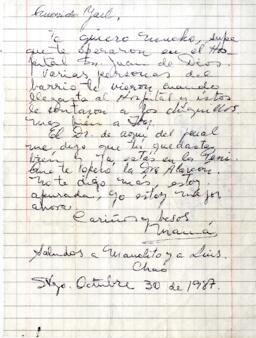 Querido Yael,
Te quiero mucho, supe
que te operaron en el Hos
pital Sn. Juan de Dios.
Varias personas del
barrio te vieron cuando
llegaste al Hospital y estos
le contaron a los chiquillos
mas bien a Fdo.
El Dr. de aquí del penal
me dijo que tu quedaste
bien y ya estas en la Peni.
que te operó la Dra Alarcón.
no te digo más, estoy
apurada, yo estoy mejor
ahora.
Cariños y besos
Mamá
Saludos a Manolito y a Luis.
Chao
Stgo. Octubre 30 de 1987.